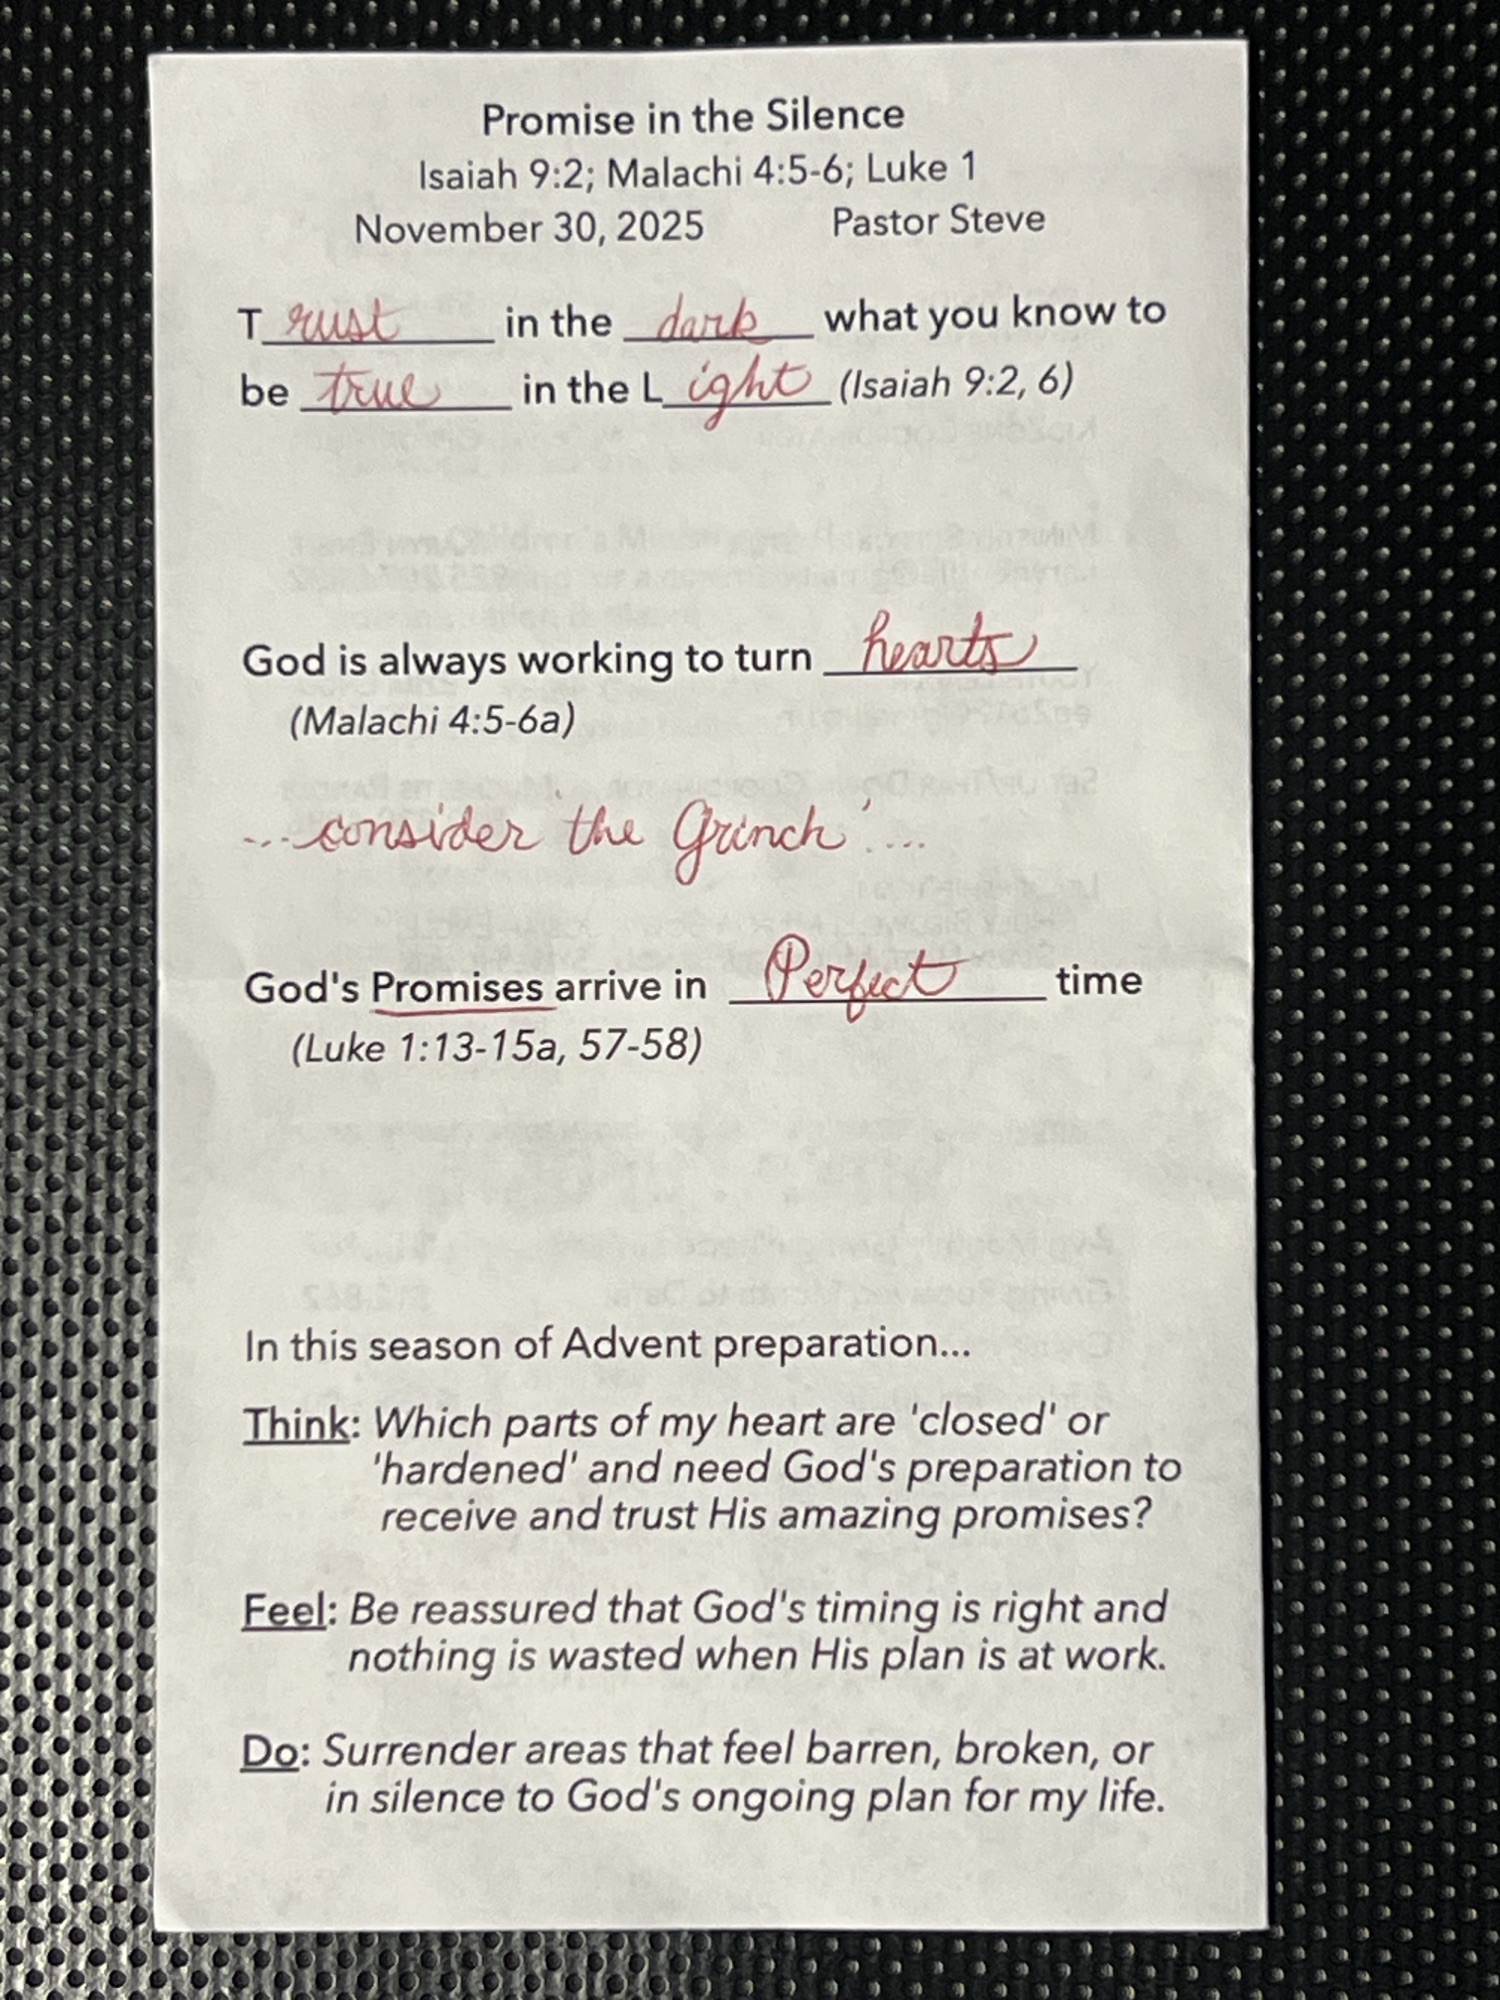 Promise in the Silence
Isaiah 9:2; Malachi 4:5-6; Luke 1
November 30, 2025 Pastor Steve
Trust in the dark what you know to
be true in the Light (Isaiah 9:2, 6)
God is always working to turn hearts
(Malachi 4:5-6a)
...consider the Grinch'....
God's Promises arrive in Perfect time
(Luke 1:13-15a, 57-58)
In this season of Advent preparation...
Think: Which parts of my heart are 'closed' or
'hardened' and need God's preparation to
receive and trust His amazing promises?
Feel: Be reassured that God's timing is right and
nothing is wasted when His plan is at work.
Do: Surrender areas that feel barren, broken, or
in silence to God's ongoing plan for my life.